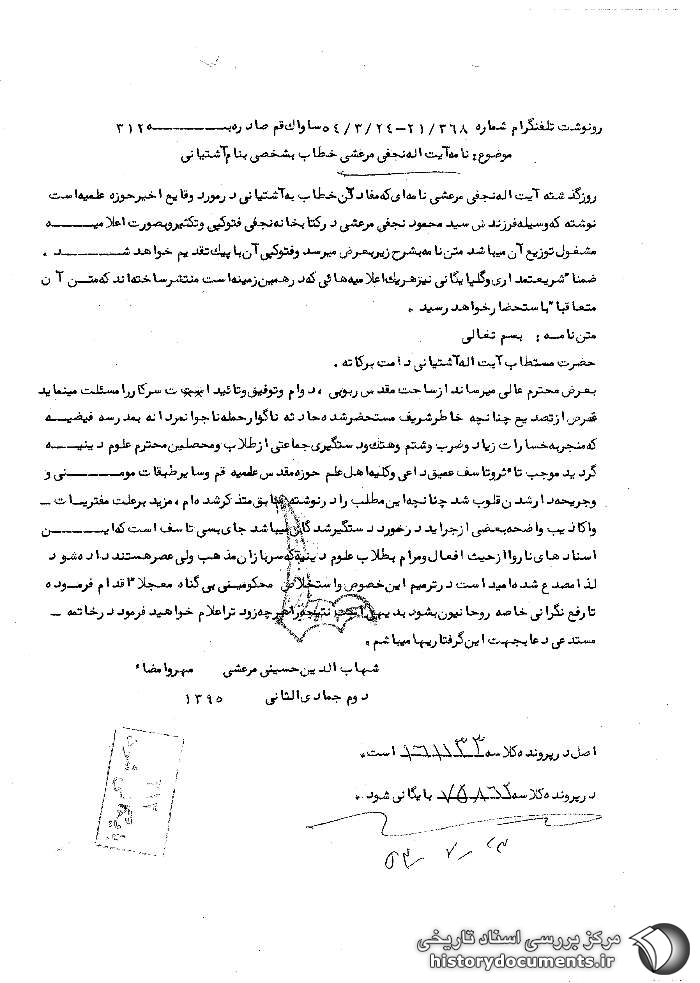 رونوشت تلفنگرام شماره ۲۱/۳۶۸-۵۴/۳/۲۴ ساواك قم صادره به ۳۱۲
موضوع: نامه آیت اله نجفی مرعشی خطاب بشخصی بنام آشتیانی
روز گذشته آیت اله نجفی مرعشی نامه ای که مفاد آن خطاب به آشتیانی در مورد وقایع اخیر حوزه علمیه است
نوشته که وسیله فرزندش سید محمود نجفی مرعشی در کتابخانه نجفی فتوکپی و تکثیر و بصورت اعلامیه
مشغول توزیع آن میباشد متن نامه بشرح زیر بعرض میرسد و فتوکپی آن با پیك تقدیم خواهد شد .
ضمنا" شریعتمداری و گلپایگانی نیز هر یك اعلامیه هائی که در همین زمینه است منتشر ساخته اند که متن آن
متعاقبا" باستحضار خواهد رسید .
متن نامه : بسم تعالی
حضرت مستطاب آیت اله آشتیانی دامت برکاته .
بعرض محترم عالی میرساند از ساحت مقدس ربوبی ، دوام و توفیق و تائیدات سرکار را مسئلت مینماید
غرض از تصدیع چنانچه خاطر شریف مستحضر شده حادثه ناگوار حمله ناجوانمردانه بمدرسه فیضیه
که منجر به خسارات زیاد و ضرب و شتم و هتك و دستگیری جماعتی از طلاب و محصلین محترم علوم دینیه
گردید موجب تا"ثر و تاسف عمیق داعی و کلیه اهل علم حوزه مقدس علمیه قم و سایر طبقات مومنی و
و جریحه دار شدن قلوب شد چنانچه این مطلب را در نوشته سابق متذکر شده ام ، مزید بر علت مفتریات
و اکاذیب واضحه بعضی از جراید در خورد دستگیر شدگان میباشد جای بسی تاسف است که این
اسنادهای ناروا از حیث افعال و مرام بطلاب علوم دینیه که سربازان مذهب ولی عصر هستند داده شود
لذا مصدع شده امید است در ترمیم این خصوص و استخلاص محکومینی بی گناه معجلا" اقدام فرموده
تا رفع نگرانی خاصه روحانیون بشود بدیهی است نتیجه را هرچه زودتر اعلام خواهید فرمود در خاتمه
مستدعی دعا بجهت این گرفتاریها میباشم .
شهاب الدین حسینی مرعشی مهر و امضاء
دوم جمادی الثانی ۱۳۹۵
اصل در پرونده کلاسه است .
در پرونده کلاسه بایگانی شود .
۳۱۲
مرکز بررسی اسناد تاریخی
historydocuments.ir